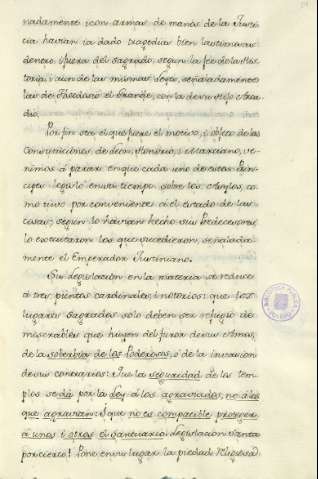 nadamente con armas de manos de la Justi-
cia havian ia dado tragedias bien lastimosas
dentro i fuera del sagrado, segun la fee de la His-
toria, i aun de las mismas Leyes, señaladamente
las de Theodosio el Grande, con la de su Hijo Arca-
dio.
Por fin sea el que fuere el motivo, i objeto de las
Constituciones de Leon, Honorio, i Marciano, ve-
nimos à parar en que cada uno de estos Prin-
cipes legisló en su tiempo sobre los Asylos, co-
mo tuvo por conveniente à el estado de las
cosas; segun lo havian hecho sus Predecesores,
lo executaron los que succedieron, señalada-
mente el Emperador Justiniano.
Su legislacion en la materia se reduce
à tres puntos cardinales, i notorios: que los
lugares sagrados solo deben ser refugio de
miserables que huyen del furor de sus Amos,
de la soberbia de los Poderosos, ó de la invasion
de sus contrarios: Que la seguridad de los tem-
plos se dá por la Ley à los agraviados, no à los
que agravian: I que no es compatible proteger
à unos i otros el Santuario. Legislacion santa
por cierto! Pone en su lugar la piedad Religiosa